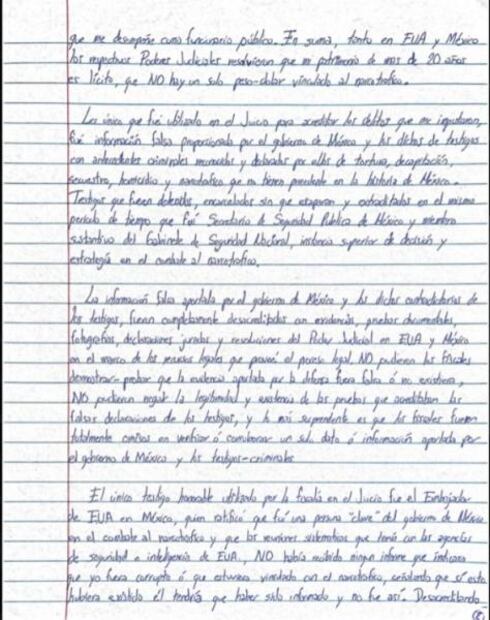 que me desempeñe como funcionario público. En suma, tanto en EUA y México
los respectivos Poderes Judiciales resolvieron que mi patrimonio de mas de 20 años
es lícito, que NO hay un solo peso-dolar vinculado al narcotrafico.
Lo único que fué utilizado en el Juicio para acreditar los delitos que me imputaron,
fué información falsa proporcionada por el gobierno de México y los dichos de testigos
con antecedentes criminales reconocidos y declarados por ellos de tortura, decapitación,
secuestro, homicidio y narcotrafico que no tienen precedente en la historia de México.
Testigos que fueron detenidos, encarcelados sin que escaparan y extraditados en el mismo
periodo de tiempo que fuí Secretario de Seguridad Publica de México y miembro
sustantivo del Gabinete de Seguridad Nacional, instancia superior de decisión y
estrategia en el combate al narcotrafico.
La información falsa aportada por el gobierno de México y los dichos contradictorios de
los testigos, fueron completamente desacreditados con evidencia, pruebas documentales,
fotografías, declaraciones juradas y resoluciones del Poder Judicial en EUA y México
en el marco de los recursos legales que provee el proceso legal, NO pudieron los fiscales
demostrar-probar que la evidencia aportada por la defensa fuera falsa ó no existiera,
NO pudieron negar la legitimidad y existencia de las pruebas que acreditaban las
falsas declaraciones de los testigos, y lo más sorprendente es que los fiscales fueron
totalmente omisos en verificar ó corroborar un solo dato ó información aportada por
el gobierno de México y los testigos-criminales
El único testigo honorable utilizado por la fiscalía en el Juicio fue el Embajador
de EUA en México, quien ratificó que fuí una persona "clave" del gobierno de México
en el combate al narcotrafico y que las reuniones sistematicas que tenía con las agencias
de seguridad e inteligencia de EUA, NO había recibido ningun informe que indicara
que yo fuera corrupto ó que estuviera vinculado con el narcotrafico, señalando que si esto
hubiera existido él tendría que haber sido informado y no fue así. Desacreditando